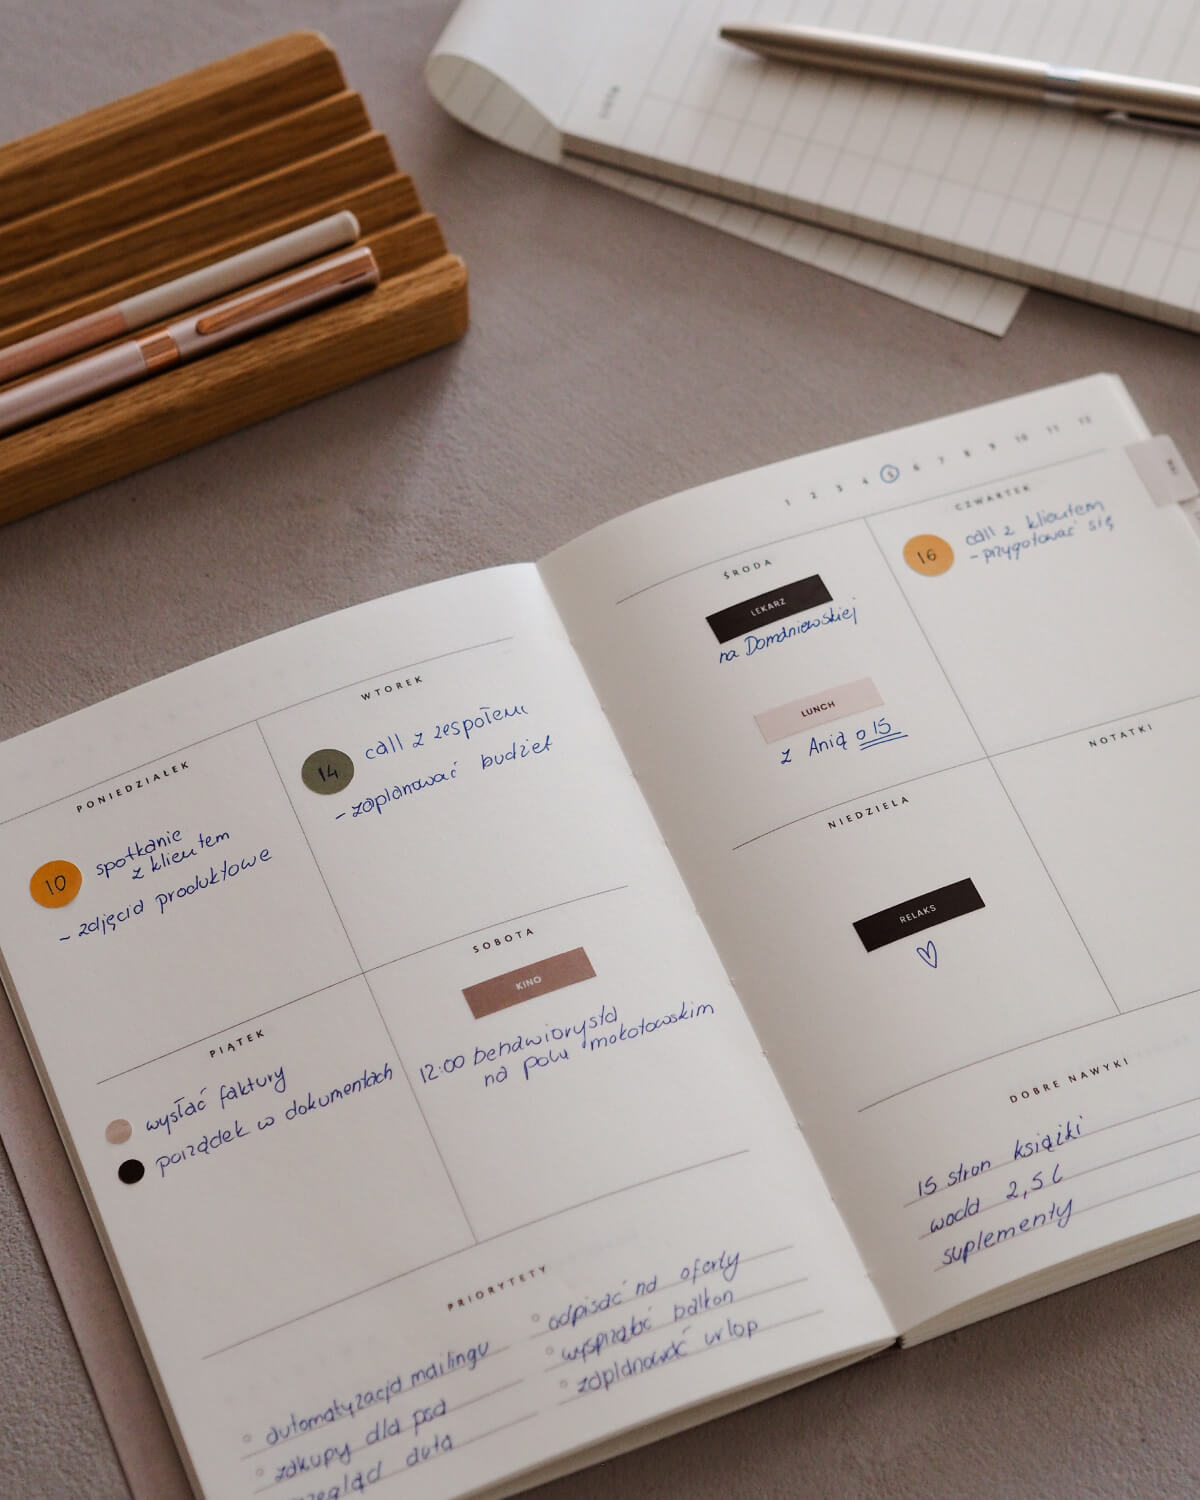 PONIEDZIAŁEK
10
spotkanie
z klientem
- zdjęcia produktowe
WTOREK
14
call z zespołem
- zaplanować budżet
PIĄTEK
wysłać faktury
porządek w dokumentach
SOBOTA
KINO
12:00 behawiorysta
na polu mokotowskim
PRIORYTETY
automatyzacja mailingu
zakupy dla psa
auta
odpisać na oferty
wysprzątać balkon
zaplanować urlop
1 2 3 4 5 6 7 8 9 10 11 12
ŚRODA
LEKARZ
na Domaniewskiej
LUNCH
z Anią o 15
CZWARTEK
16
call z klientem
- przygotować się
NIEDZIELA
RELAKS
NOTATKI
DOBRE NAWYKI
15 stron książki
woda 2,5 l
suplementy